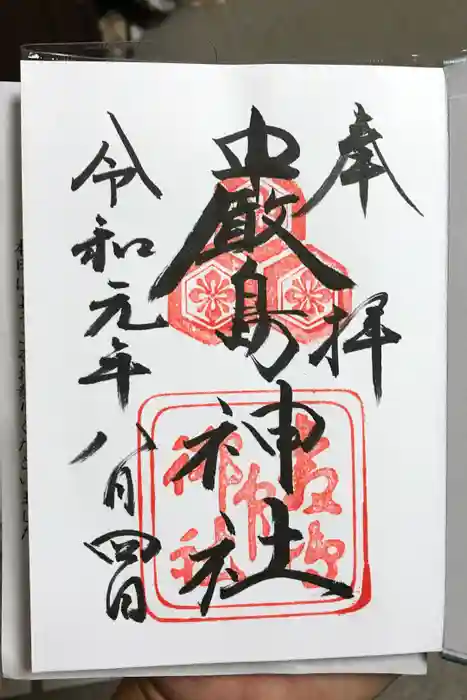 奉拝
厳島神社
令和元年八月四日